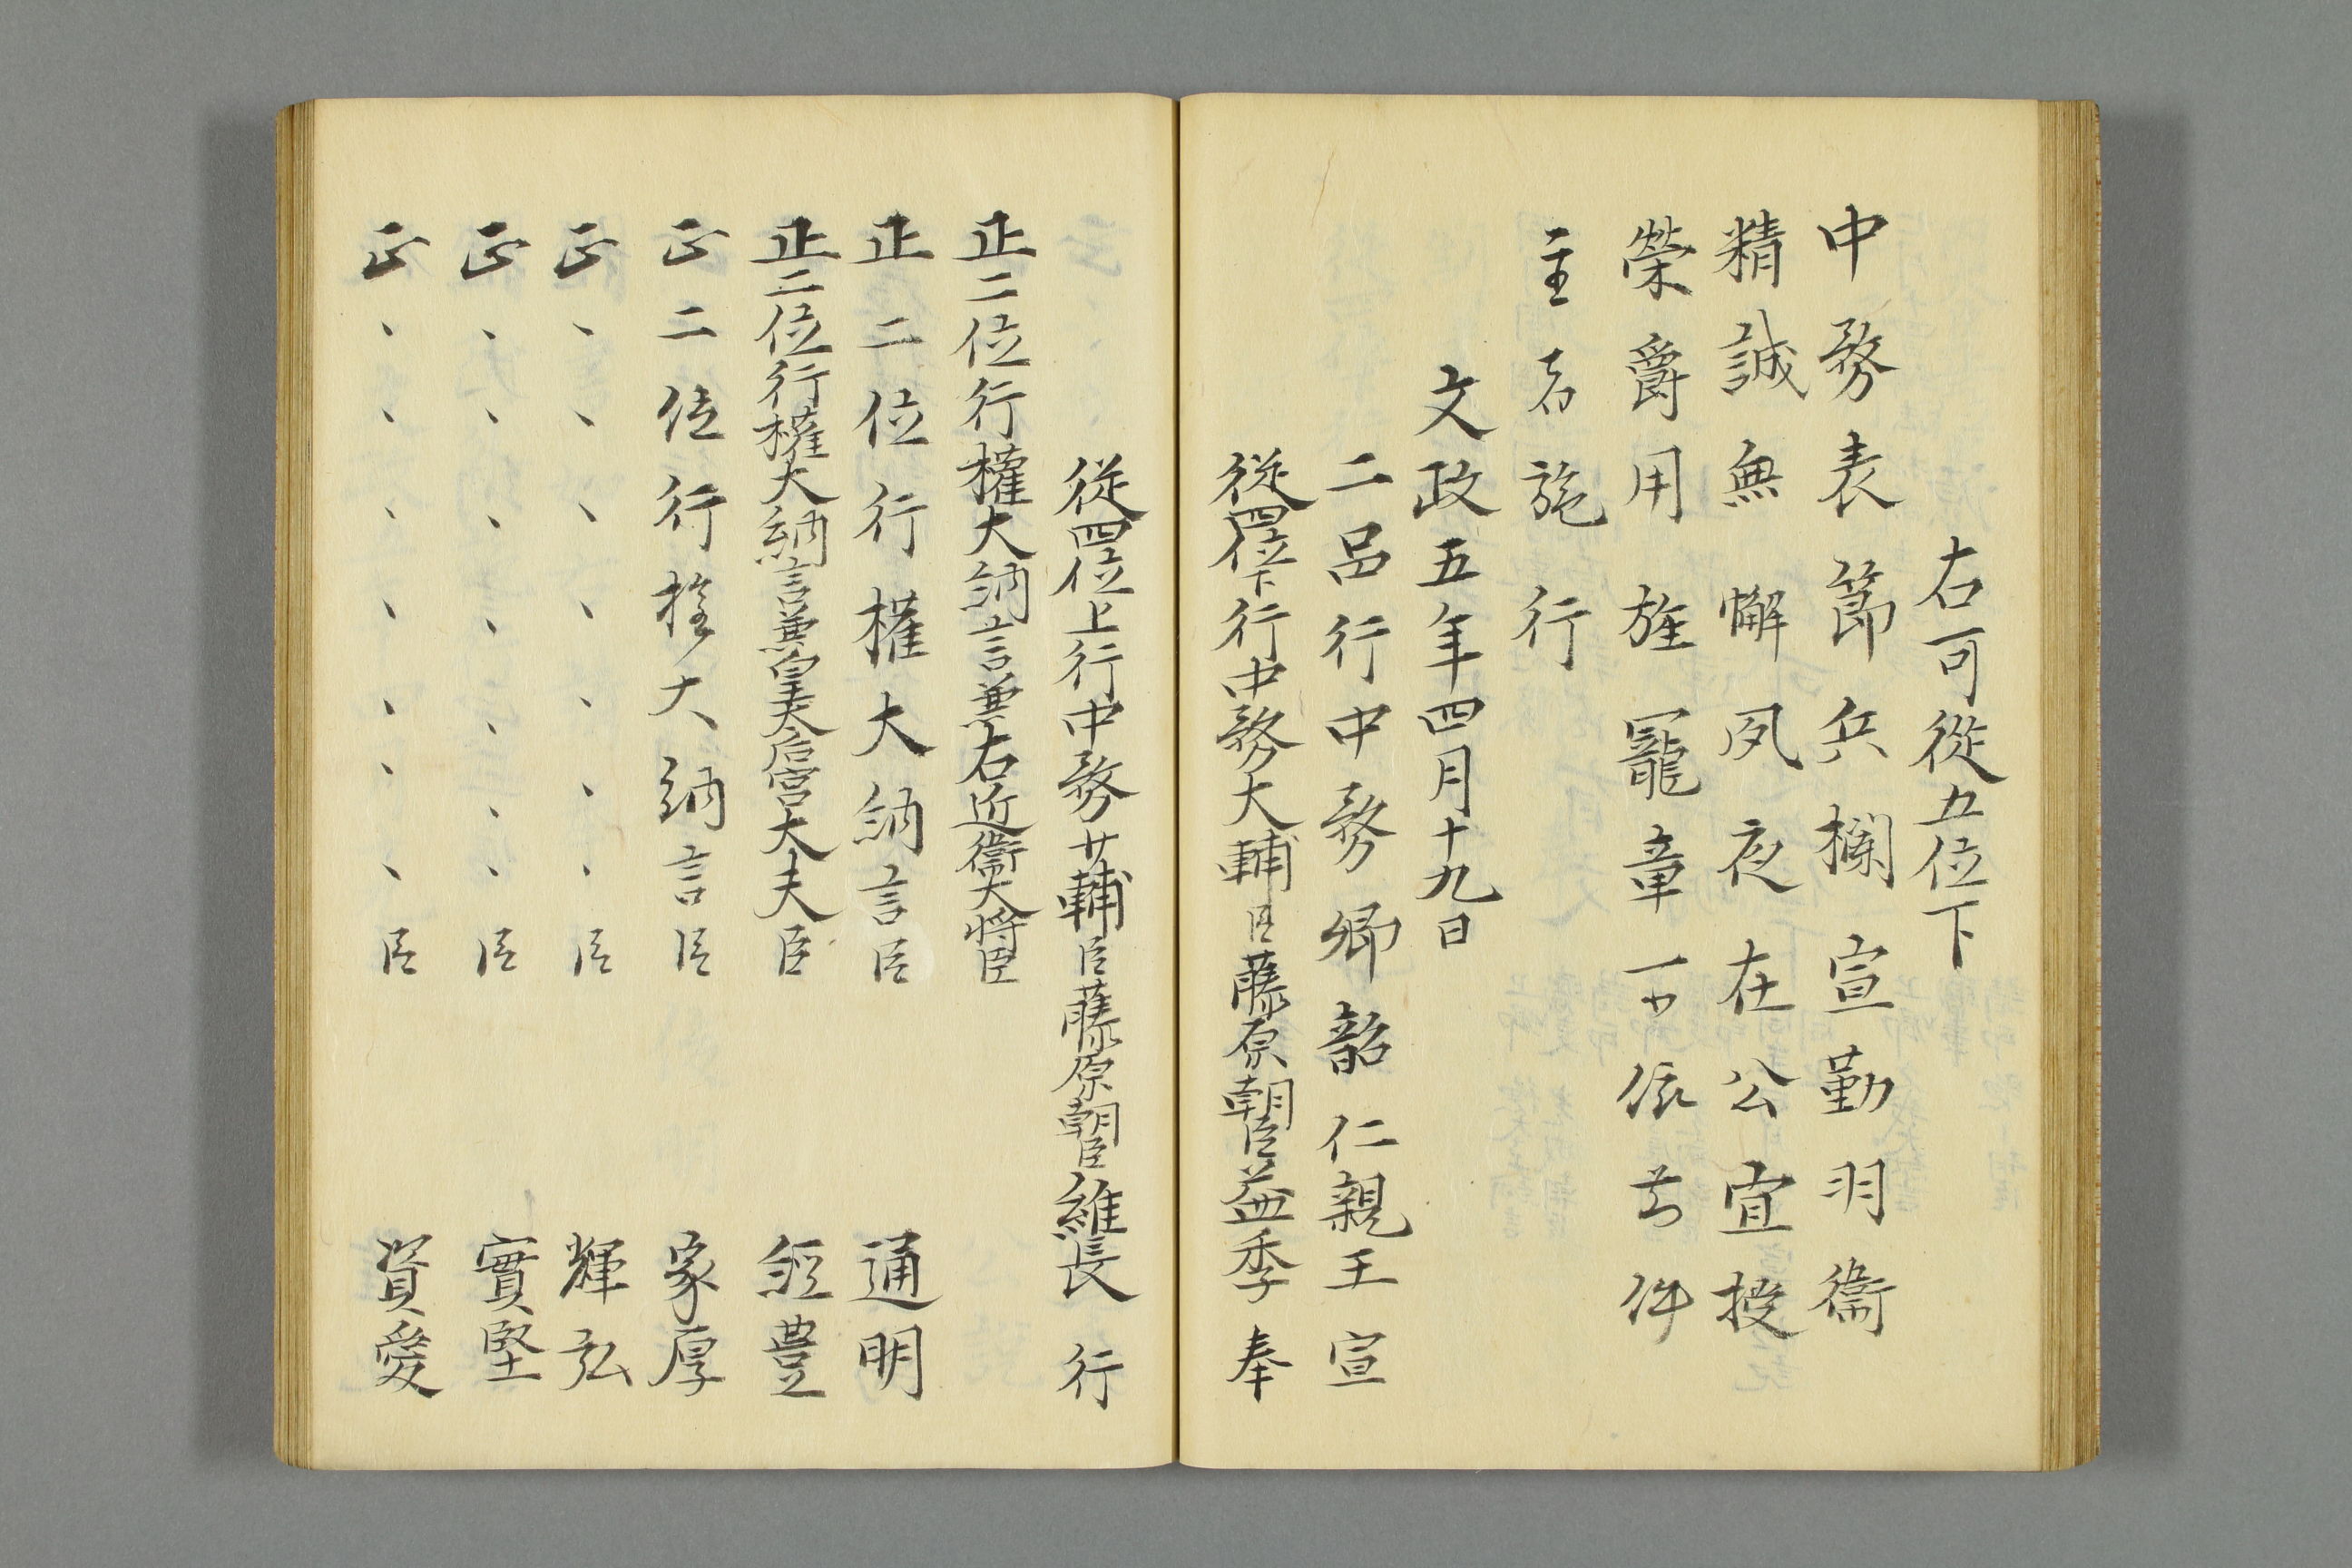 右可從五位下
中務表節兵欄宣勤羽衞
精誠無懈夙夜在公宜授
榮爵用旌寵章可依前件
主者施行
文政五年四月十九日
二品行中務卿韶仁親王宣
從四位下行中務大輔臣藤原朝臣益季奉
從四位上行中務少輔臣藤原朝臣維長行
正二位行權大納言兼右近衞大将臣
正二位行權大納言臣通明
正二位行權大納言兼皇太后宮大夫臣經豊
正二位行権大納言臣家厚
正、、、、、、、臣輝弘
正、、、、、、、臣實堅
正、、、、、、、臣資愛